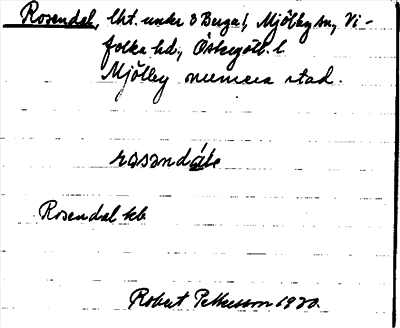 Rosendal, lht. under 3 Berga!, Mjölby sn, Vi-
folka hd, Östergötl. l
Mjölby numera stad.
rosendále
Rosendal kb
Robert Pettersson 1920.